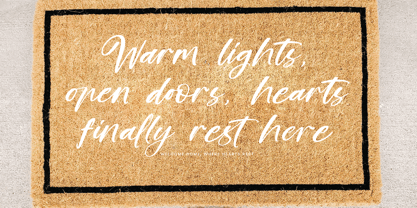 Warm lights,
open doors, hearts
finally rest here